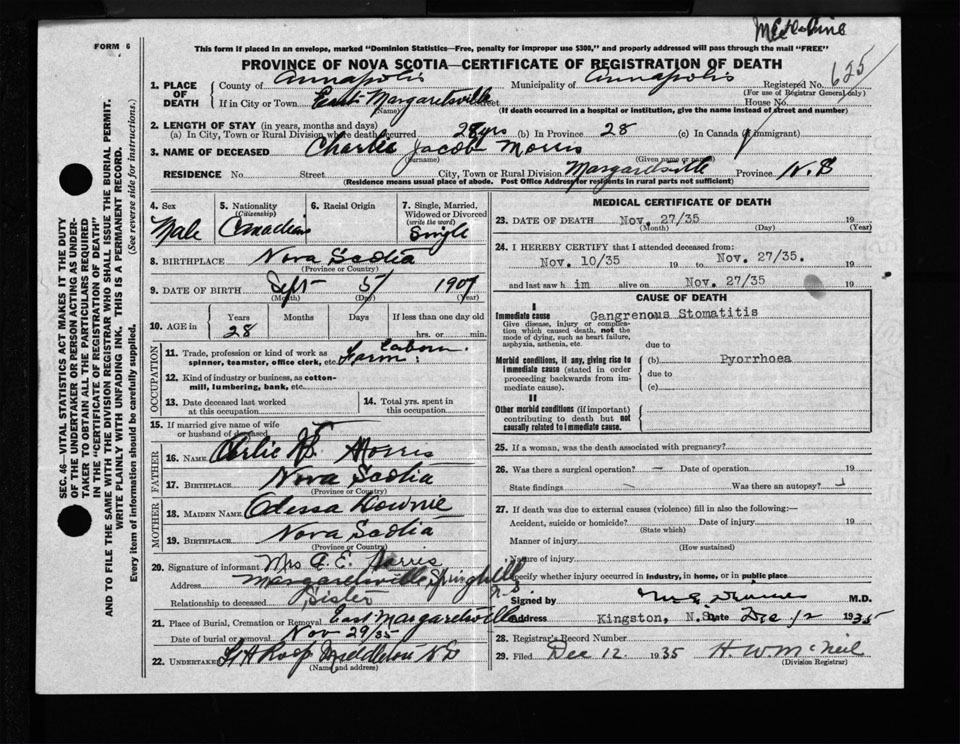 FORM 6
This form if placed in an envelope, marked "Dominion Statistics—Free, penalty for improper use $300," and properly addressed will pass through the mail "FREE"
PROVINCE OF NOVA SCOTIA—CERTIFICATE OF REGISTRATION OF DEATH
1. PLACE OF DEATH County of Annapolis Municipality of Annapolis Registered No. 625
(For use of Registrar General only)
If in City or Town East Margaretsville Street House No.
(Name) (If death occurred in a hospital or institution, give the name instead of street and number)
2. LENGTH OF STAY (in years, months and days)
(a) In City, Town or Rural Division where death occurred 28 yrs (b) In Province 28 (c) In Canada (if immigrant)
3. NAME OF DECEASED Charlie Jacob Morris
(Surname) (Given name or names)
RESIDENCE No. Street City, Town or Rural Division Margaretsville Province N.S
(Residence means usual place of abode. Post Office Address for residents in rural parts not sufficient)
4. Sex Male
5. Nationality (Citizenship) Canadian
6. Racial Origin
7. Single, Married, Widowed or Divorced (write the word) Single
8. BIRTHPLACE Nova Scotia
(Province or Country)
9. DATE OF BIRTH Sept 5 1907
(Month) (Day) (Year)
10. AGE in Years Months Days If less than one day old
28 hrs. or min.
OCCUPATION
11. Trade, profession or kind of work as spinner, teamster, office clerk, etc. Farm Laborer
12. Kind of industry or business, as cotton-mill, lumbering, bank, etc.
13. Date deceased last worked at this occupation
14. Total yrs. spent in this occupation
15. If married give name of wife or husband of deceased
FATHER
16. NAME Morris
17. BIRTHPLACE Nova Scotia
(Province or Country)
MOTHER
18. MAIDEN NAME Odessa Downie
19. BIRTHPLACE Nova Scotia
(Province or Country)
20. Signature of informant Mrs G. E. Harris
Address Margaretsville Springhill N.S
Relationship to deceased Sister
21. Place of Burial, Cremation or Removal East Margaretsville
Date of burial or removal Nov 29/35
22. UNDERTAKER Middleton NS
(Name and address)
MEDICAL CERTIFICATE OF DEATH
23. DATE OF DEATH Nov. 27/35 19
(Month) (Day) (Year)
24. I HEREBY CERTIFY that I attended deceased from:
Nov. 10/35 19 to Nov. 27/35. 19
and last saw h im alive on Nov. 27/35 19
CAUSE OF DEATH
I
Immediate cause Gangrenous Stomatitis
Give disease, injury or complication which caused death, not the mode of dying, such as heart failure, asphyxia, asthenia, etc.
due to
Morbid conditions, if any, giving rise to immediate cause (stated in order proceeding backwards from immediate cause).
(b) Pyorrhoea
due to
(c)
II
Other morbid conditions (if important) contributing to death but not causally related to immediate cause.
25. If a woman, was the death associated with pregnancy?
26. Was there a surgical operation? — Date of operation 19
State findings Was there an autopsy?
27. If death was due to external causes (violence) fill in also the following:—
Accident, suicide or homicide? Date of injury 19
(State which)
Manner of injury
(How sustained)
Nature of injury
Specify whether injury occurred in industry, in home, or in public place
Signed by M.D.
Address Kingston, N.S. Date Dec 12 1935
28. Registrar's Record Number
29. Filed Dec 12. 1935 H. W. McNeil
(Division Registrar)
SEC. 46—VITAL STATISTICS ACT MAKES IT THE DUTY
OF THE UNDERTAKER OR PERSON ACTING AS UNDER-
TAKER TO OBTAIN ALL THE PARTICULARS REQUIRED
IN THE "CERTIFICATE OF REGISTRATION OF DEATH"
AND TO FILE THE SAME WITH THE DIVISION REGISTRAR WHO SHALL ISSUE THE BURIAL PERMIT.
WRITE PLAINLY WITH UNFADING INK. THIS IS A PERMANENT RECORD.
Every item of information should be carefully supplied. (See reverse side for instructions.)